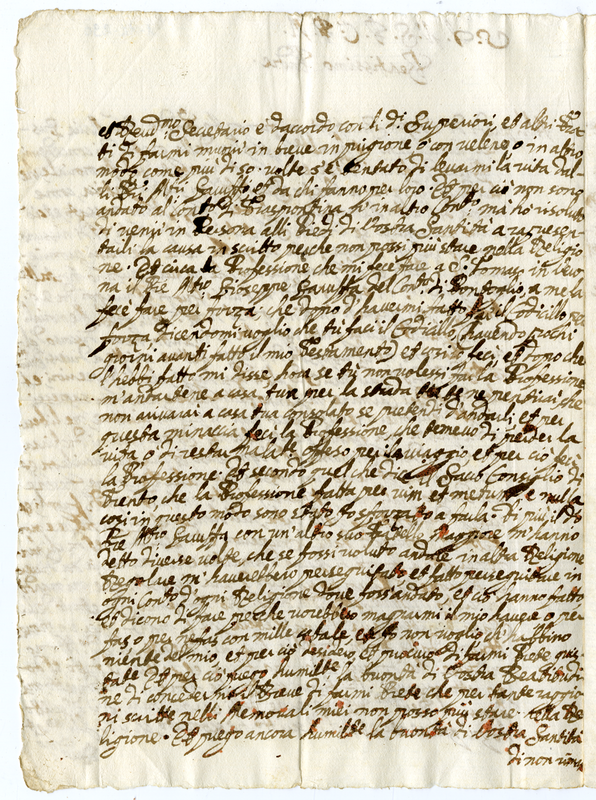 et Reud.mo Secretario è d'accordo con li d.i Superiori, et altri Fra
ti di farmi morir in breve in prigione ò con veleno, o in altro
modo come più di 50. volte s'è tentato di levarmi la vita dal-
li Gavuffo et da chi fanno per loro. Et per ciò non sono
andato al Conto di Traspontina, ò in altro Conto, ma ho risoluto
di venir in Persona alli Piedi di Vostra Santità a rapresen
tarli la causa in scritto perche non possi più stare nella Religio
ne. Et circa la Professione che mi fece fare a S. Tomaso in
na il Pre Giuseppe Gavuffa del Conto di Bonfoglio, a me la
fece fare per forza, che dopo d'havermi fatto far il Codicillo per
forza dicendomi voglio che tu faci il Codicillo, havendo pochi
giorni avanti fatto il mio Testamento, et così lo feci, et dopo che
l'hebbi fatto mi disse, hora se tù non volessi far la Professione
m'andarebene a casa tua per la strada
non arivarai a casa tua consolato se pretendi d'andarli, et per
questa minaccia feci la Professione che temevo di perder la
vita, ò di restar offeso per il viaggio et per ciò feci
la Professione. Et secondo quel che dice il Sacro Consiglio di
Trento che la Professione fatta per vim et metum è nulla
così in questo modo sono stato sforzato a farla. Di più il d.o
Pre Gavuffa con un'altro suo fratello maggiore m'hanno
detto diverse volte, che se fossi voluto andare in altra Religione
Regolare m'haverebbero perseguitato et fatto perseguitare in
ogni Conto d'ogni Religione dove foss'andato, et ciò hanno fatto
et dicono di fare perche vorebbero magnarmi il mio havere o per
fas o per nefas con mille cabale, et io non voglio ch'habbino
niente del mio, et per ciò desidero, et procuro di farmi Prete
Et per ciò prego humilte la buontà di Vostra Beatitudi
ne di concedermi il Breve di farmi Prete che per tante raggio
ni scritte nelli Memoriali miei non posso più stare nella Re
ligione. Et prego ancora humilte la buontà di Vostra Santità
di non